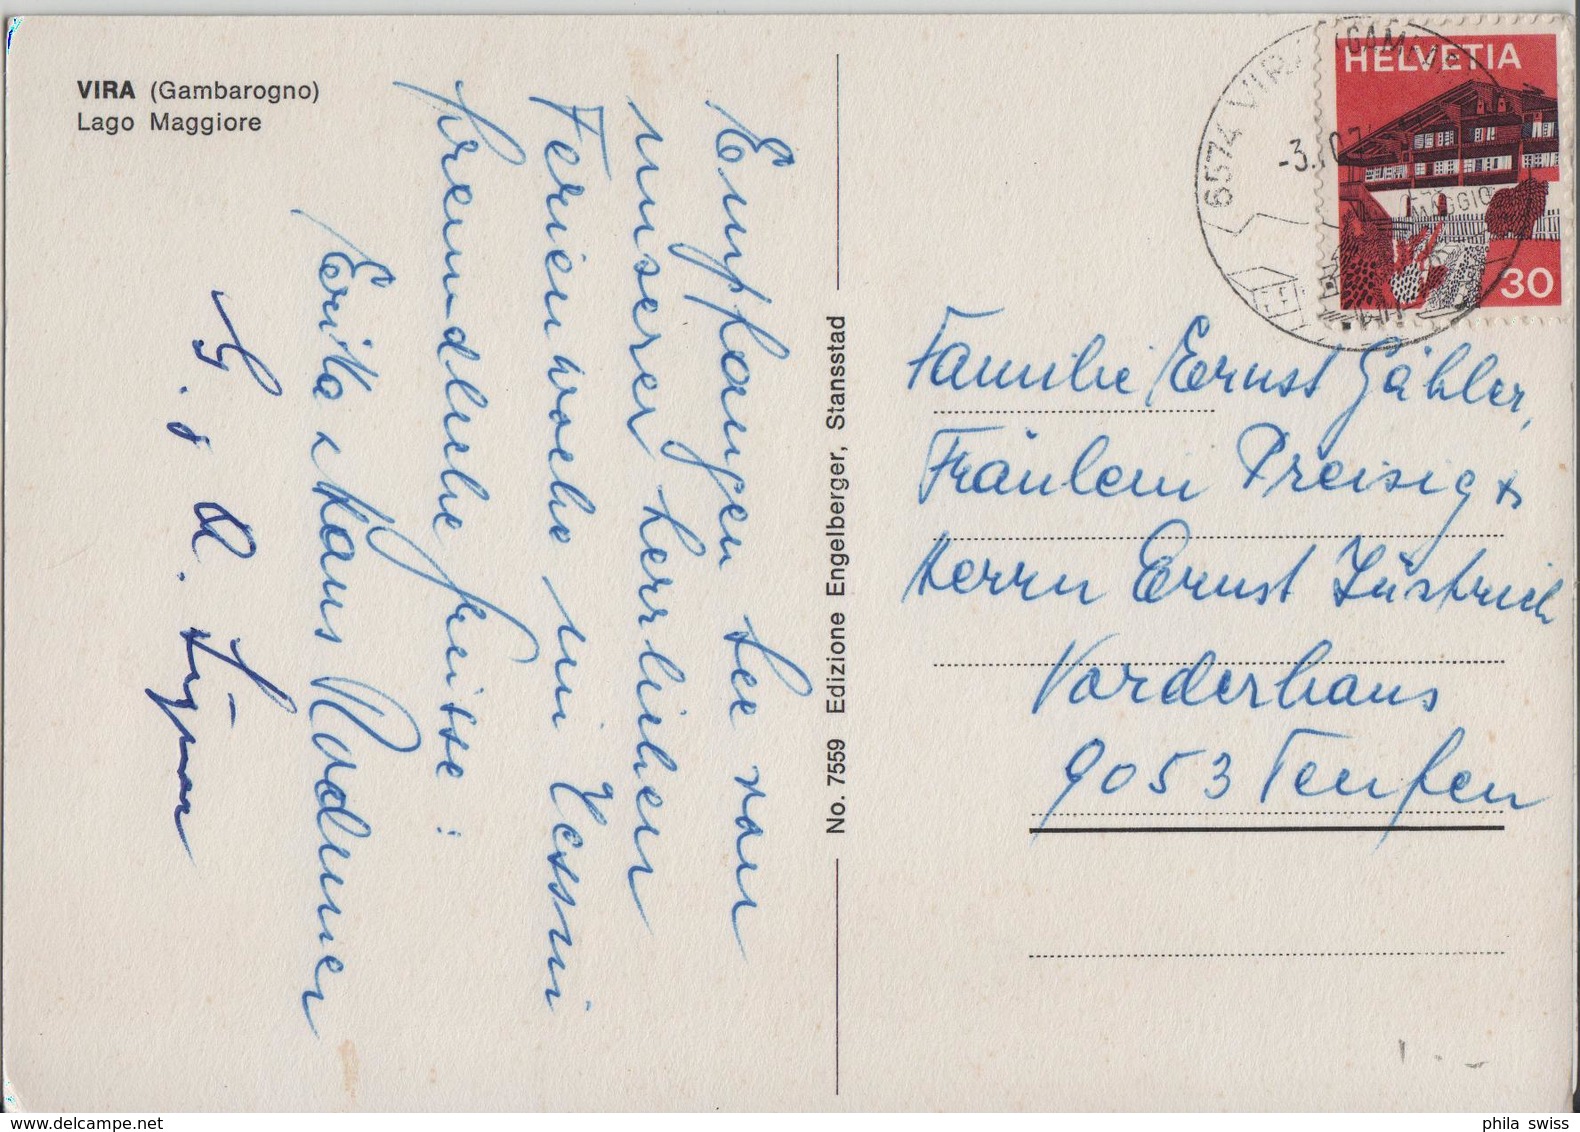 VIRA (Gambarogno)
Lago Maggiore
Empfangen Sie von
unserer herrlichen
Ferienwoche im Tessin
freundliche Grüsse!
Erika & Hans Rodunner
No. 7559 Edizione Engelberger, Stansstad
6574 VIRA (GAMB
-3.
MAGGIO
HELVETIA
30
Familie Ernst Gähler,
Fräulein Preisig &
Herrn Ernst Züstrich
Vorderhaus
9053 Teufen
phila swiss